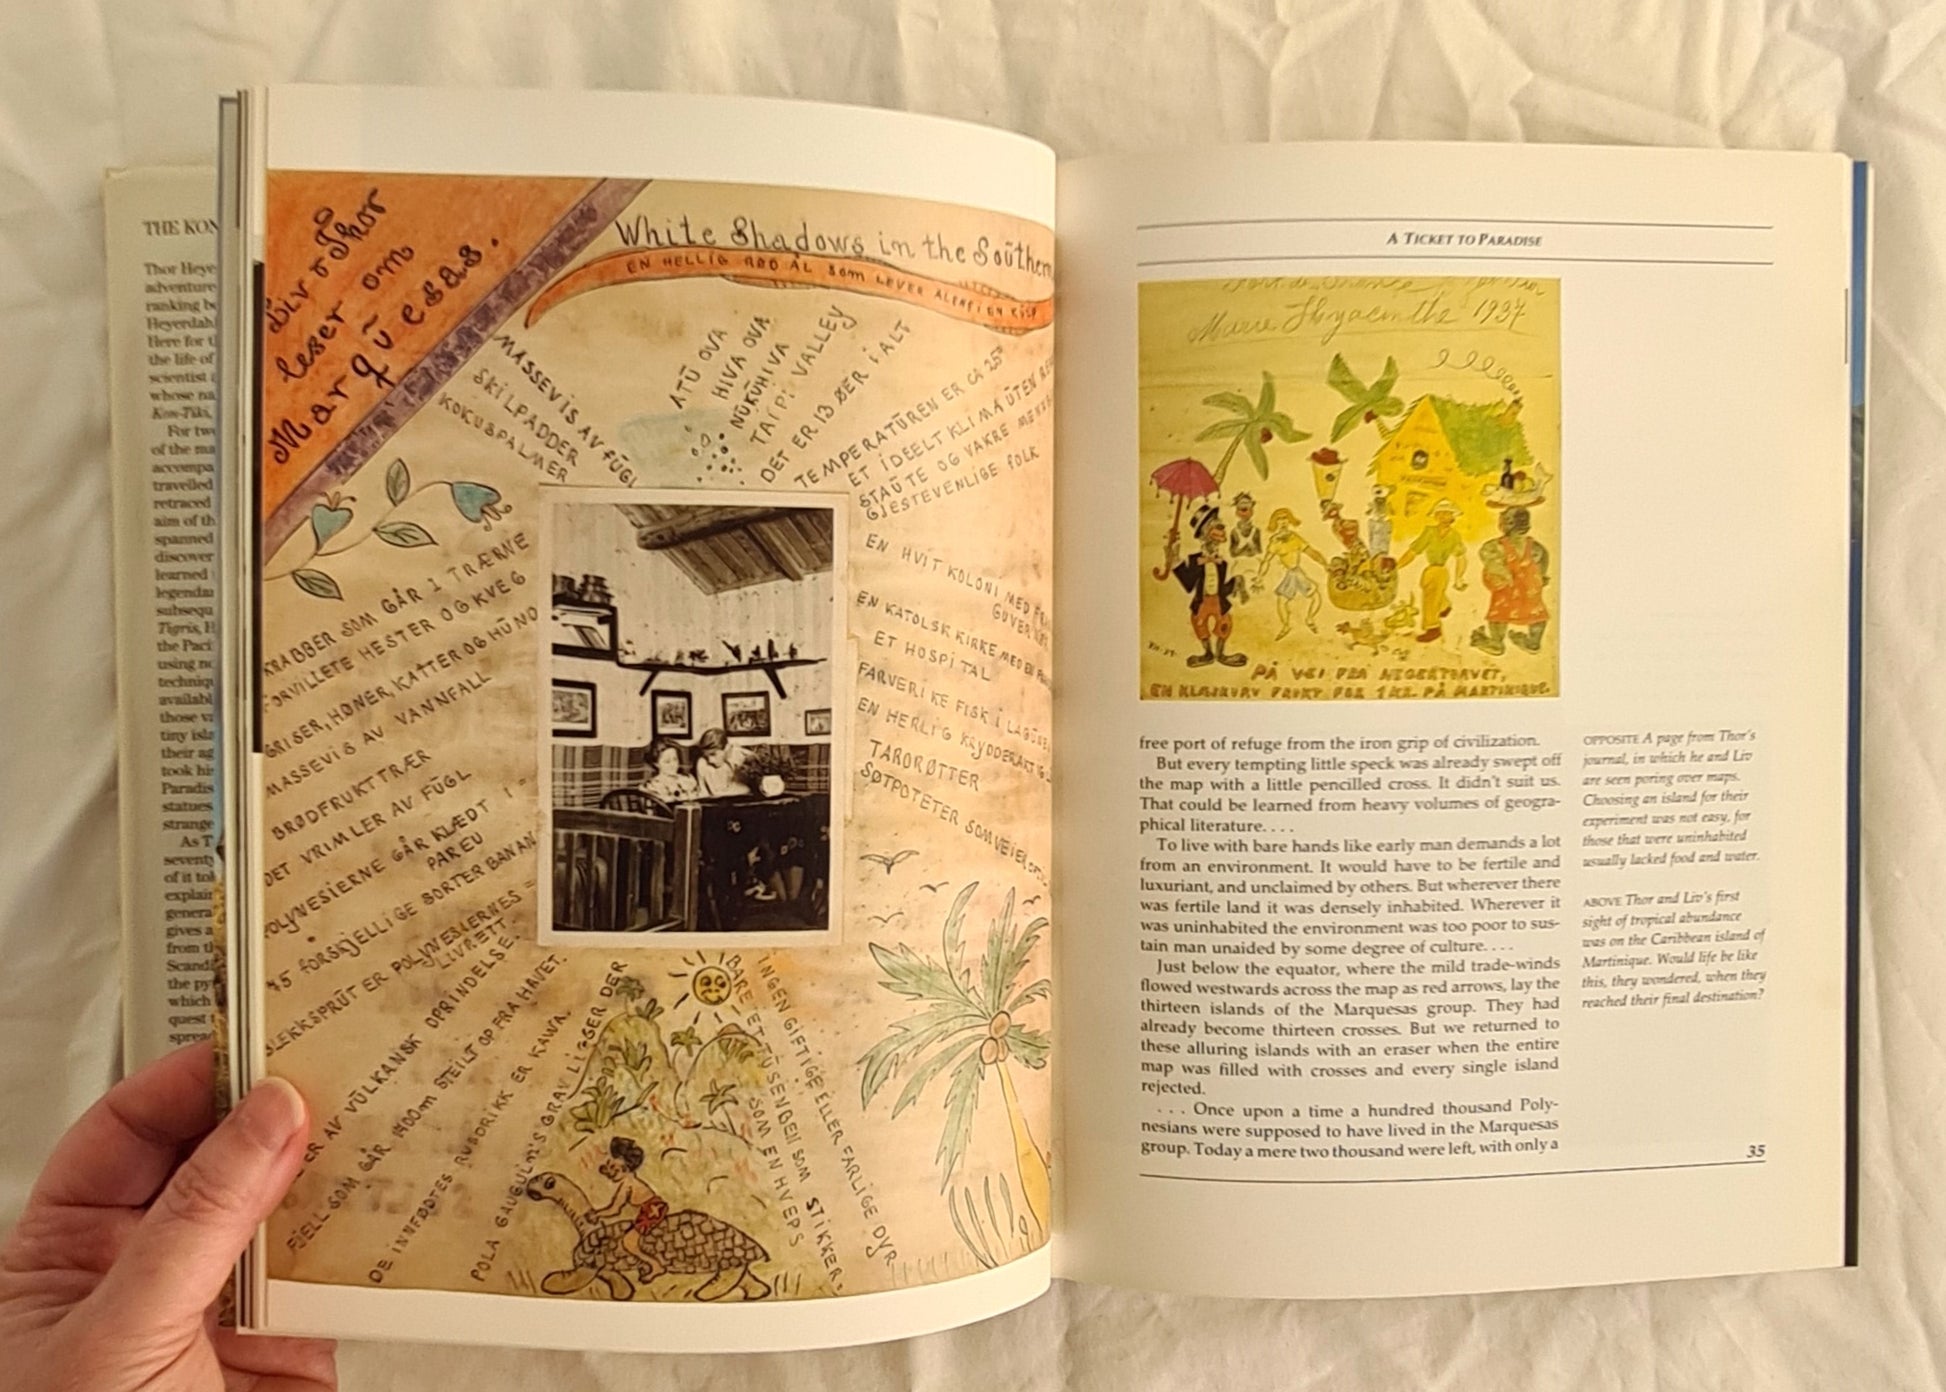 THE KON
Thor Heye
adventure
ranking be
Heyerdahl
Here for t
the life of
scientist
whose na
Kon-Tiki,
For two
of the ma
accompa
travelled
retraced
aim of th
spanned
discover
learned
legenda
subsequ
Tigris, H
the Paci
using no
techniqu
availabl
those va
tiny isla
their ag
took his
Paradis
statues
strange
As T
seventy
of it tol
explain
general
gives a
from th
Scandi
the py
which
quest
sprea
Liv o Thor
leser om
Marqūesas.
White Shadows in the Soūthern
EN HELLIG RØD ÅL SOM LEVER ALENE I EN
MASSEVIS AV FŪGL
SKILPADDER
KOKUSPALMER
ATŪ OVA
HIVA OVA
NŪKŪHIVA
TAIPI VALLEY
DET ER 13 ØER I ALT
TEMPERATŪREN ER CA 25°
ET IDEELT KLIMA ŪTEN
STAŪTE OG VAKRE
GJESTEVENLIGE FOLK
EN HVIT KOLONI MED
GUVERNØR
EN KATOLSK KIRKE MED EN
ET HOSPITAL
FARVERIKE FISK I LAGŪNEN
EN HERLIG KRYDDERAKTIG
TARORØTTER
SØTPOTETER SOM VEIER
KRABBER SOM GÅR I TRÆRNE
FORVILLETE HESTER OG KVEG
GRISER, HØNER, KATTER OG HŪND
MASSEVIS AV VANNFALL
BRØDFRUKTTRÆR
DET VRIMLER AV FŪGL
POLYNESIERNE GÅR KLÆDT I =
PAREU
75 FORSKJELLIGE SORTER BANAN
BLEKKSPRŪT ER POLYNESIERNES =
LIVRETT.
ER AV VŪLKANSK OPRINDELSE.
FJELL SOM GÅR 1400m STEILT OP FRA HAVET.
DE INNFØDTES RUSDRIKK ER KAWA.
POLA GAUGUIN'S GRAV LIGGER DER
BARE ET TŪSENGEN SOM
SOM EN HVEPS
STIKKER.
INGEN GIFTIGE ELLER FARLIGE DYR
A TICKET TO PARADISE
Fort de France
Marie Hyacinthe 1937
PÅ VEI FRA NEGERTORVET,
EN KLÆSKURV FRUKT FOR 1 KR. PÅ MARTINIQUE.
free port of refuge from the iron grip of civilization.
But every tempting little speck was already swept off
the map with a little pencilled cross. It didn't suit us.
That could be learned from heavy volumes of geogra-
phical literature. . . .
To live with bare hands like early man demands a lot
from an environment. It would have to be fertile and
luxuriant, and unclaimed by others. But wherever there
was fertile land it was densely inhabited. Wherever it
was uninhabited the environment was too poor to sus-
tain man unaided by some degree of culture. . . .
Just below the equator, where the mild trade-winds
flowed westwards across the map as red arrows, lay the
thirteen islands of the Marquesas group. They had
already become thirteen crosses. But we returned to
these alluring islands with an eraser when the entire
map was filled with crosses and every single island
rejected.
. . . Once upon a time a hundred thousand Poly-
nesians were supposed to have lived in the Marquesas
group. Today a mere two thousand were left, with only a
OPPOSITE A page from Thor's
journal, in which he and Liv
are seen poring over maps.
Choosing an island for their
experiment was not easy, for
those that were uninhabited
usually lacked food and water.
ABOVE Thor and Liv's first
sight of tropical abundance
was on the Caribbean island of
Martinique. Would life be like
this, they wondered, when they
reached their final destination?
35